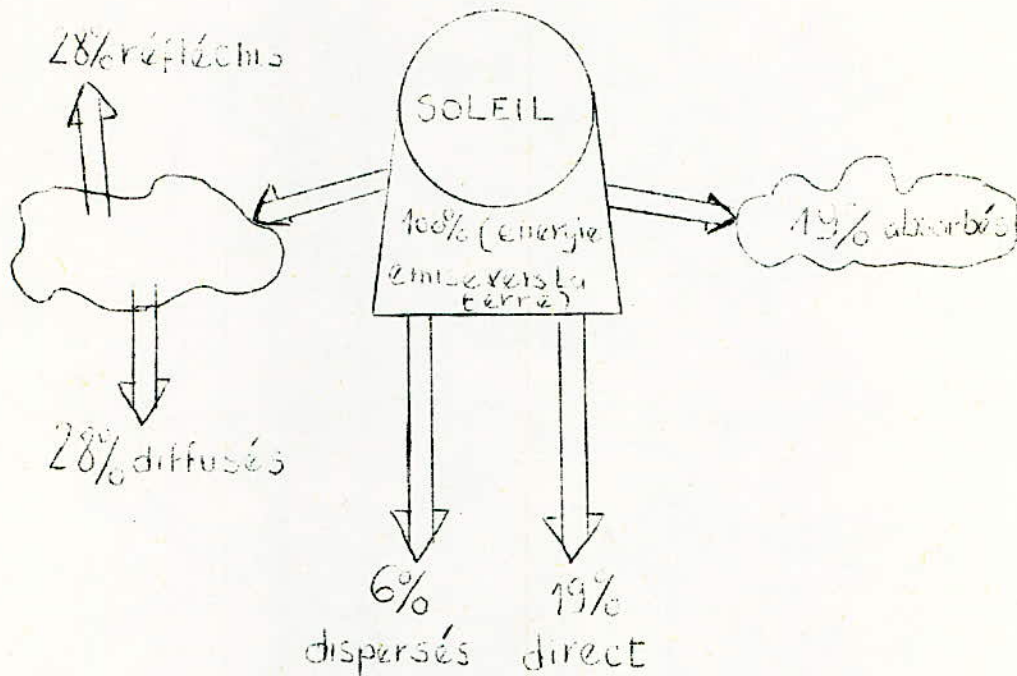 28% réfléchis
SOLEIL
100% (énergie
émise vers la
terre)
19% absorbés
28% diffusés
6%
dispersés
19%
direct